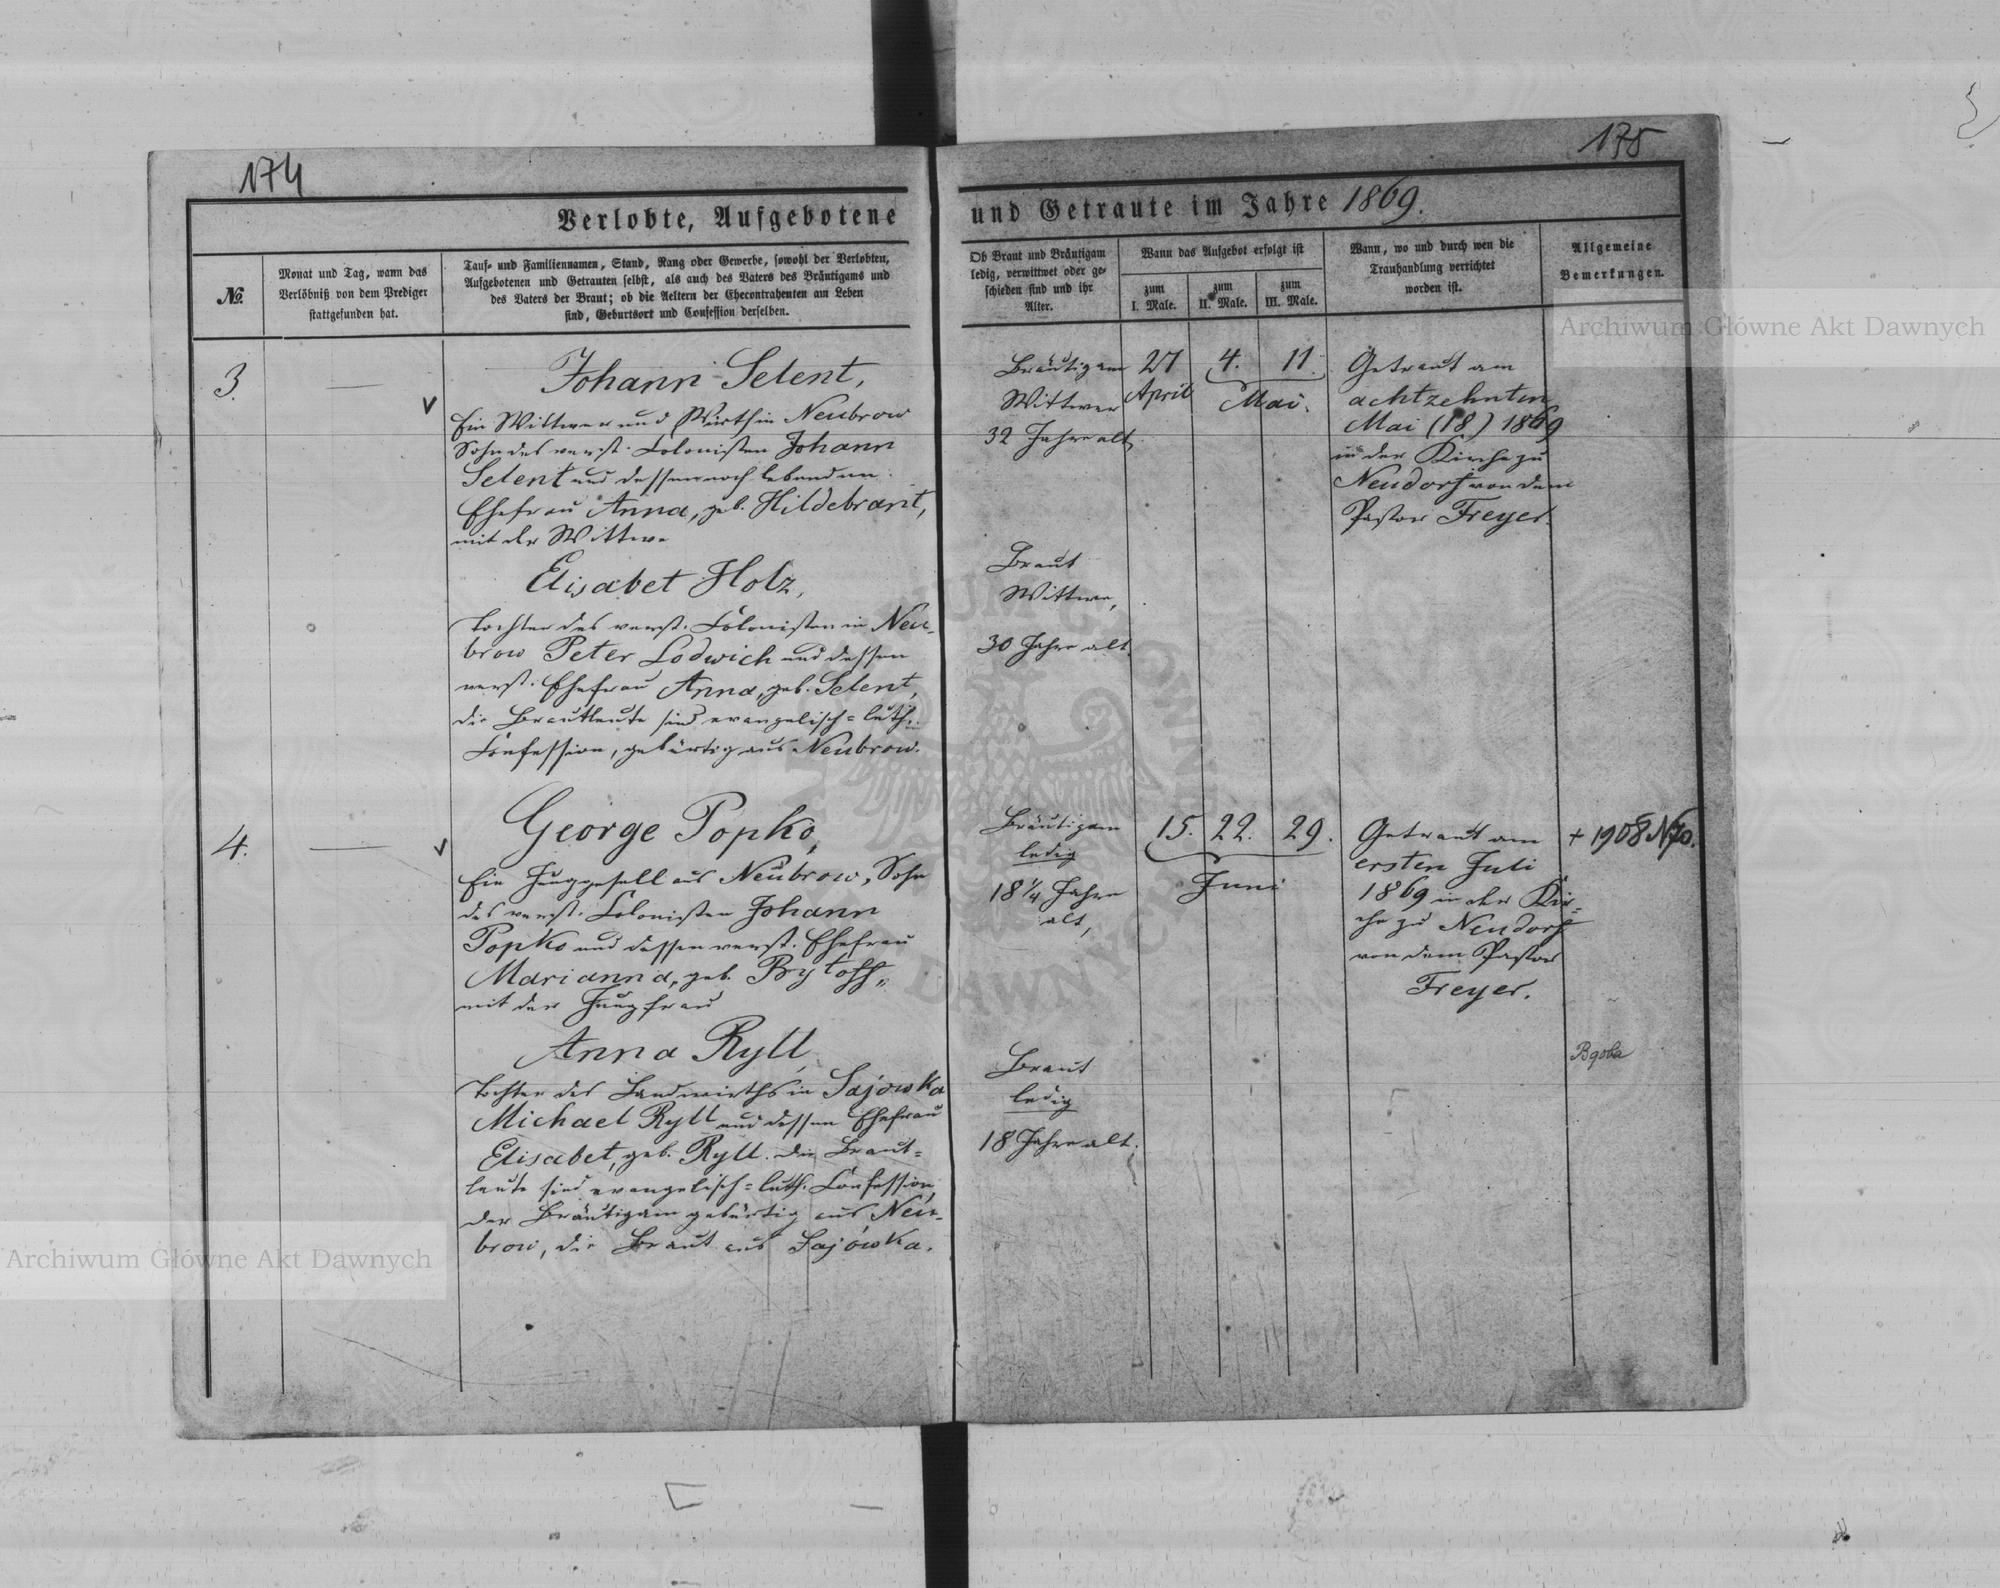 174
175
Verlobte, Aufgebotene
und Getraute im Jahre 1869.
№
Monat und Tag, wann das
Verlöbniß von dem Prediger
stattgefunden hat.
Tauf- und Familiennamen, Stand, Rang oder Gewerbe, sowohl der Verlobten,
Aufgebotenen und Getrauten selbst, als auch des Vaters des Bräutigams und
des Vaters der Braut; ob die Aeltern der Ehecontrahenten am Leben
sind, Geburtsort und Confession derselben.
Ob Braut und Bräutigam
ledig, verwittwet oder ge-
schieden sind und ihr
Alter.
Wann das Aufgebot erfolgt ist
zum
I. Male.
zum
II. Male.
zum
III. Male.
Wann, wo und durch wen die
Trauhandlung verrichtet
worden ist.
Allgemeine
Bemerkungen.
3.
Johann Selent,
Ein Wittwer und Wirth in Neubrow
Sohn des verst. Colonisten Johann
Selent und dessen noch lebenden
Ehefrau Anna, geb. Hildebrant,
mit der Wittwe
Elisabet Holz,
Tochter des verst. Colonisten in Neu-
brow Peter Lodwich und dessen
verst. Ehefrau Anna, geb. Selent,
die Brautleute sind evangelisch=luth.
Confession, gebürtig aus Neubrow.
Bräutigam
Wittwer
32 Jahre alt,
Braut
Wittwe,
30 Jahre alt.
27
April
4. 11.
Mai.
Getraut am
achtzehnten
Mai (18) 1869
in der Kirche zu
Neudorf von dem
Pastor Freyer.
4.
George Popko,
Ein Junggesell aus Neubrow, Sohn
des verst. Colonisten Johann
Popko und dessen verst. Ehefrau
Marianna, geb. Bytoff,
mit der Jungfrau
Anna Ryll,
Tochter des Landwirths in Sajowka
Michael Ryll und dessen Ehefrau
Elisabet, geb. Ryll. Die Braut=
leute sind evangelisch=luth. Confession,
der Bräutigam gebürtig aus Neu-
brow, die Braut aus Sajówka.
Bräutigam
ledig
18 1/4 Jahre
alt,
Braut
ledig
18 Jahre alt.
15. 22. 29.
Juni
Getraut am
ersten Juli
1869 in der Kir=
che zu Neudorf
von dem Pastor
Freyer.
+ 1908 N70.
Archiwum Główne Akt Dawnych
Archiwum Główne Akt Dawnych